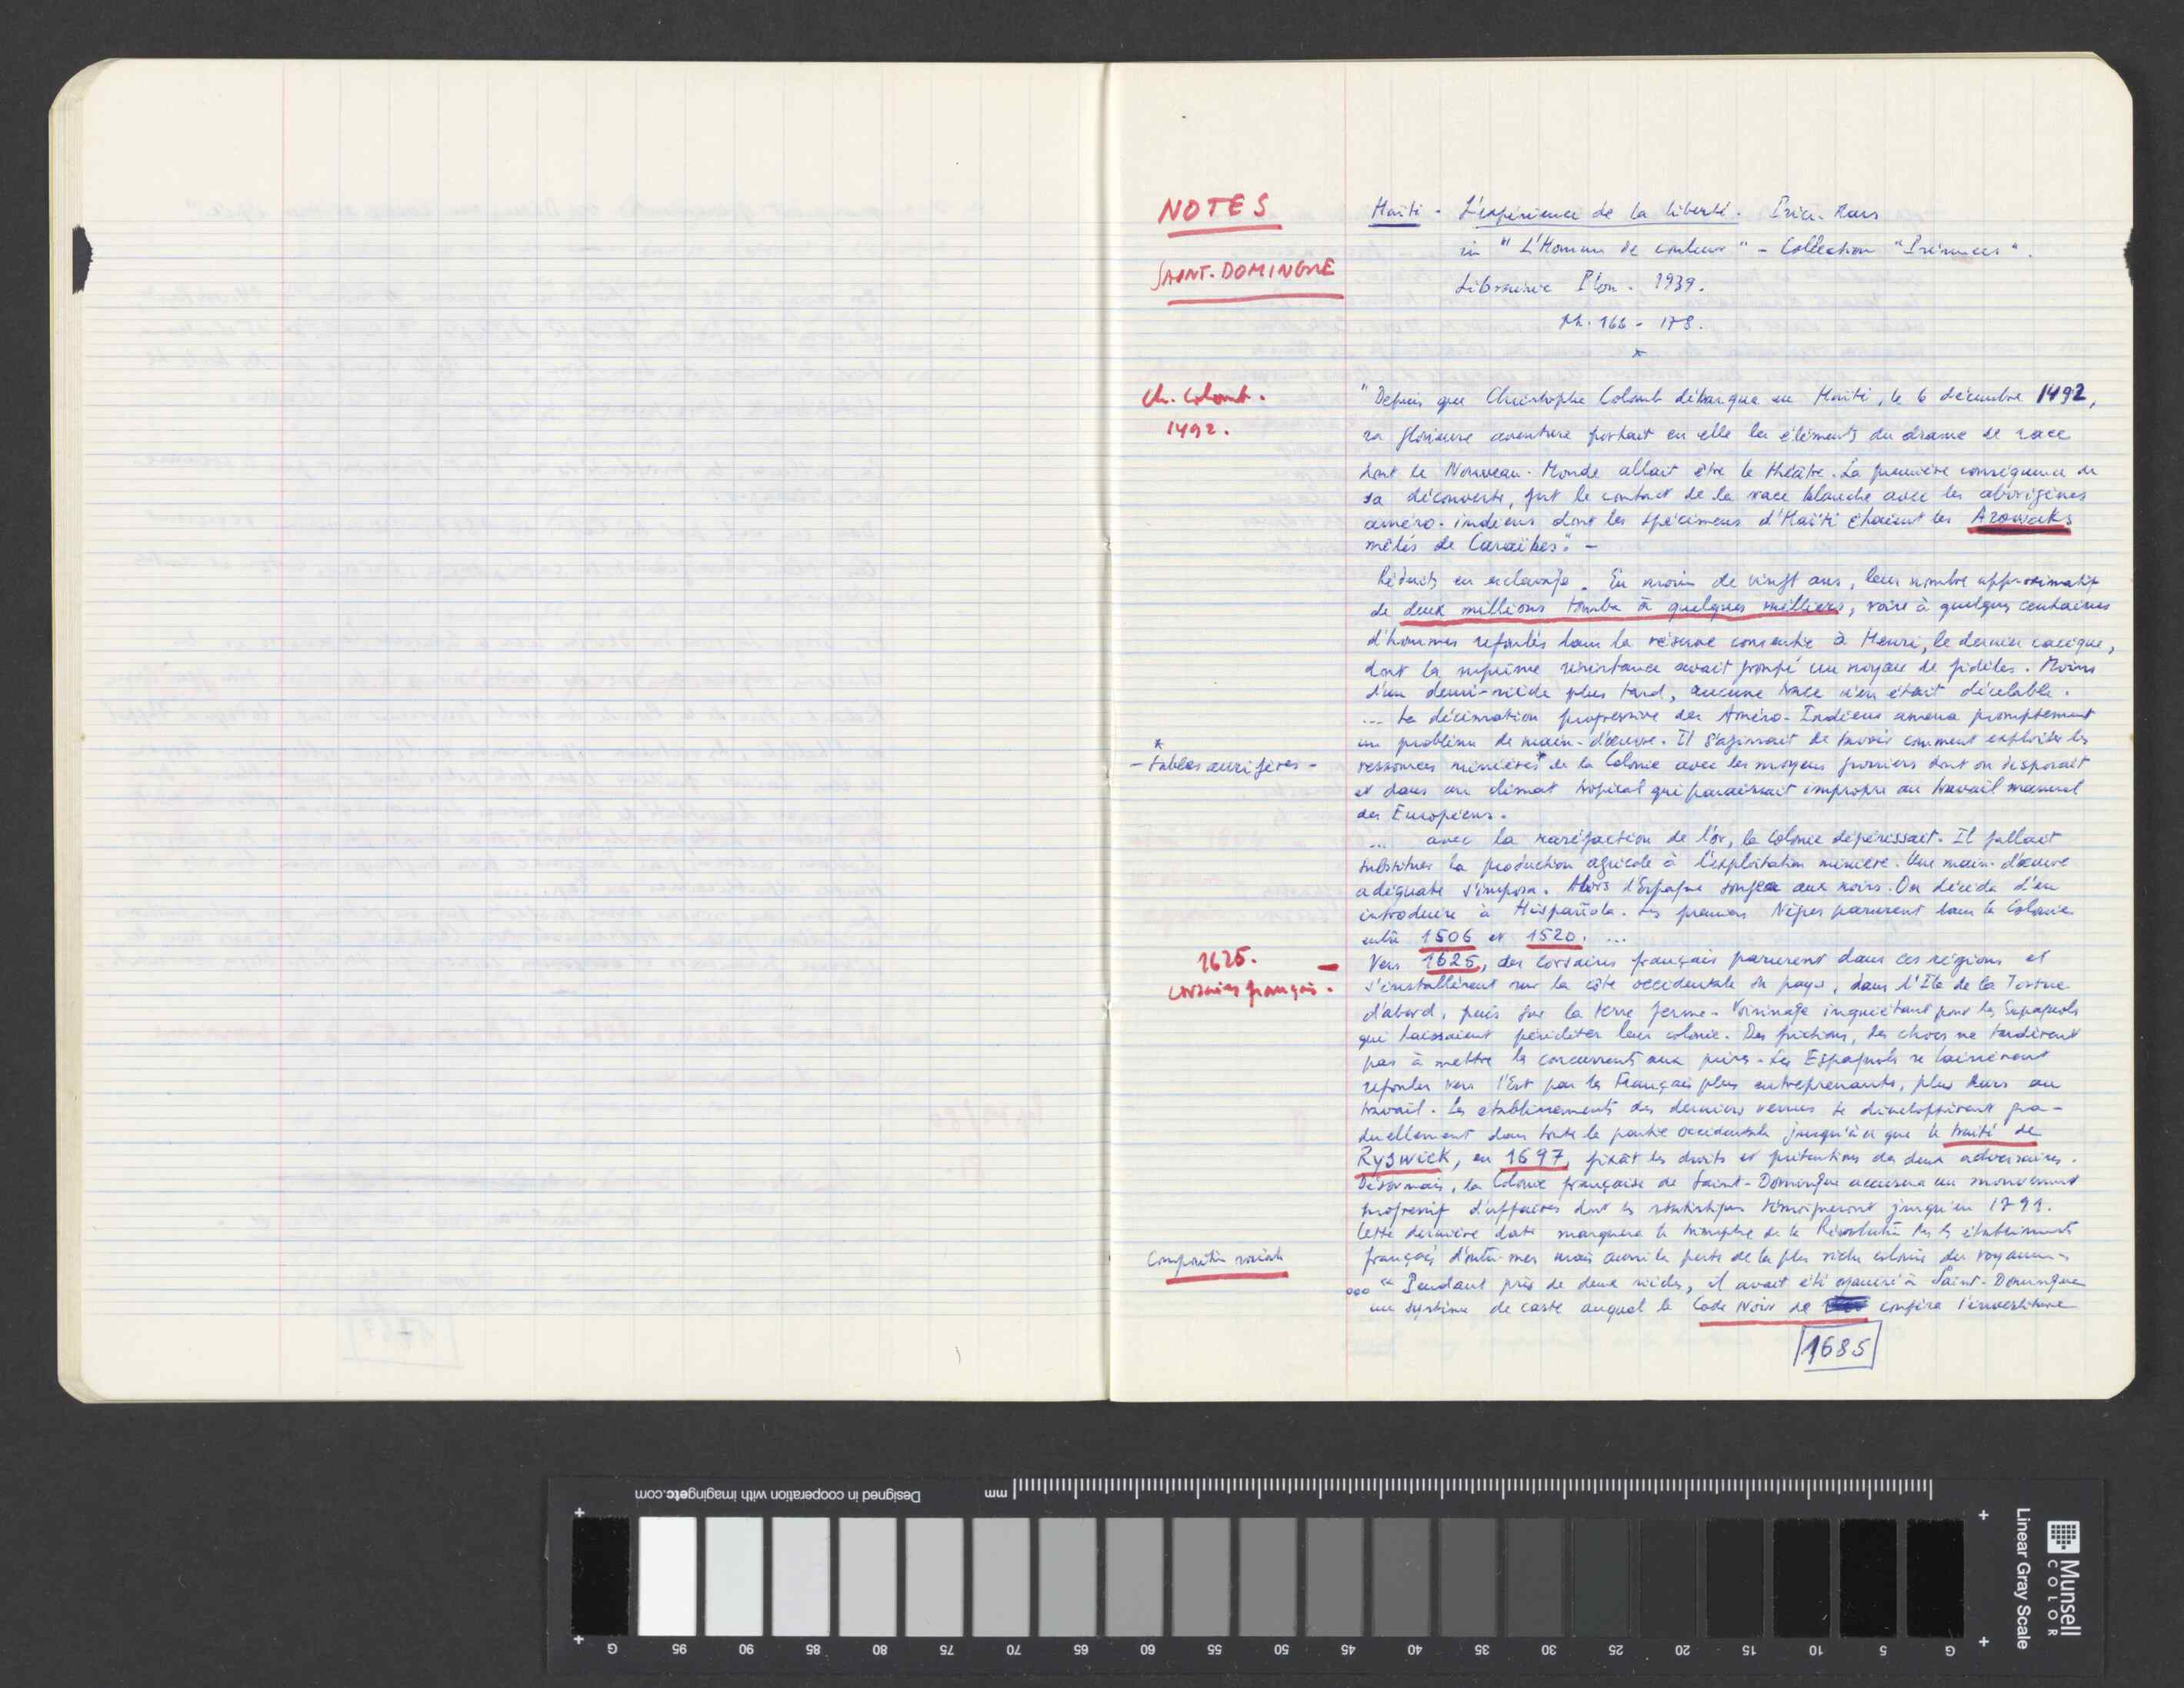 NOTES
SAINT-DOMINGUE
Haïti - L'expérience de la liberté. Price-Mars
in "L'Homme de couleur" - Collection "Présences".
Librairie Plon - 1939.
*
Ch. Colomb.
1492.
"Depuis que Christophe Colomb débarqua en Haïti, le 6 décembre 1492,
sa glorieuse aventure portait en elle les éléments du drame de race
dont le Nouveau-Monde allait être le théâtre. La première conséquence de
sa découverte, fut le contact de la race blanche avec les aborigènes
améro-indiens dont les spécimens d'Haïti étaient les Arowaks
mêlés de Caraïbes". -
Réduits en esclavage. En moins de vingt ans, leur nombre approximatif
de deux millions tomba à quelques milliers, voire à quelques centaines
d'hommes refoulés dans la réserve consentie à Henri, le dernier cacique,
dont la suprême résistance avait groupé un noyau de fidèles. Moins
d'un demi-siècle plus tard, aucune trace n'en était décelable.
... La décimation progressive des Améro-Indiens amena promptement
un problème de main-d'œuvre. Il s'agissait de savoir comment exploiter les
ressources minières* de la Colonie avec les moyens grossiers dont on disposait
et dans un climat tropical qui paraissait impropre au travail manuel
des Européens.
*
- sables aurifères -
... avec la raréfaction de l'or, la Colonie dépérissait. Il fallait
substituer la production agricole à l'exploitation minière. Une main-d'œuvre
adéquate s'imposa. Alors l'Espagne songea aux noirs. On décida d'en
introduire à Hispañola. Les premiers Nègres parurent dans la Colonie
entre 1506 et 1520. ...
1625. -
corsaires français.
Vers 1625, des corsaires français parurent dans ces régions et
s'installèrent sur la côte occidentale du pays, dans l'Ile de la Tortue
d'abord, puis sur la terre ferme. Voisinage inquiétant pour les Espagnols
qui laissaient péricliter leur colonie. Des frictions, des chocs ne tardèrent
pas à mettre les concurrents aux prises. Les Espagnols se laissèrent
refouler vers l'Est par les Français plus entreprenants, plus durs au
travail. Les établissements des derniers venus se développèrent gra-
duellement dans toute la partie occidentale jusqu'à ce que le traité de
Ryswick, en 1697, fixât les droits et prétentions des deux adversaires.
Désormais, la Colonie française de Saint-Domingue accusera un mouvement
progressif d'affaires dont les statistiques témoigneront jusqu'en 1791.
Cette dernière date marquera le triomphe de la Révolution les établissements
français d'outre-mer mais aussi la perte de la plus riche colonie du royaume.
Composition sociale
ooo "Pendant près de deux siècles, il avait été à Saint-Domingue
un système de caste auquel le Code Noir de conféra l'investiture
1685
Designed in cooperation with imagingetc.com
mm
Munsell
COLOR
Linear Gray Scale
G 95 90 85 80 75 70 65 60 55 50 45 40 35 30 25 20 15 10 5 G